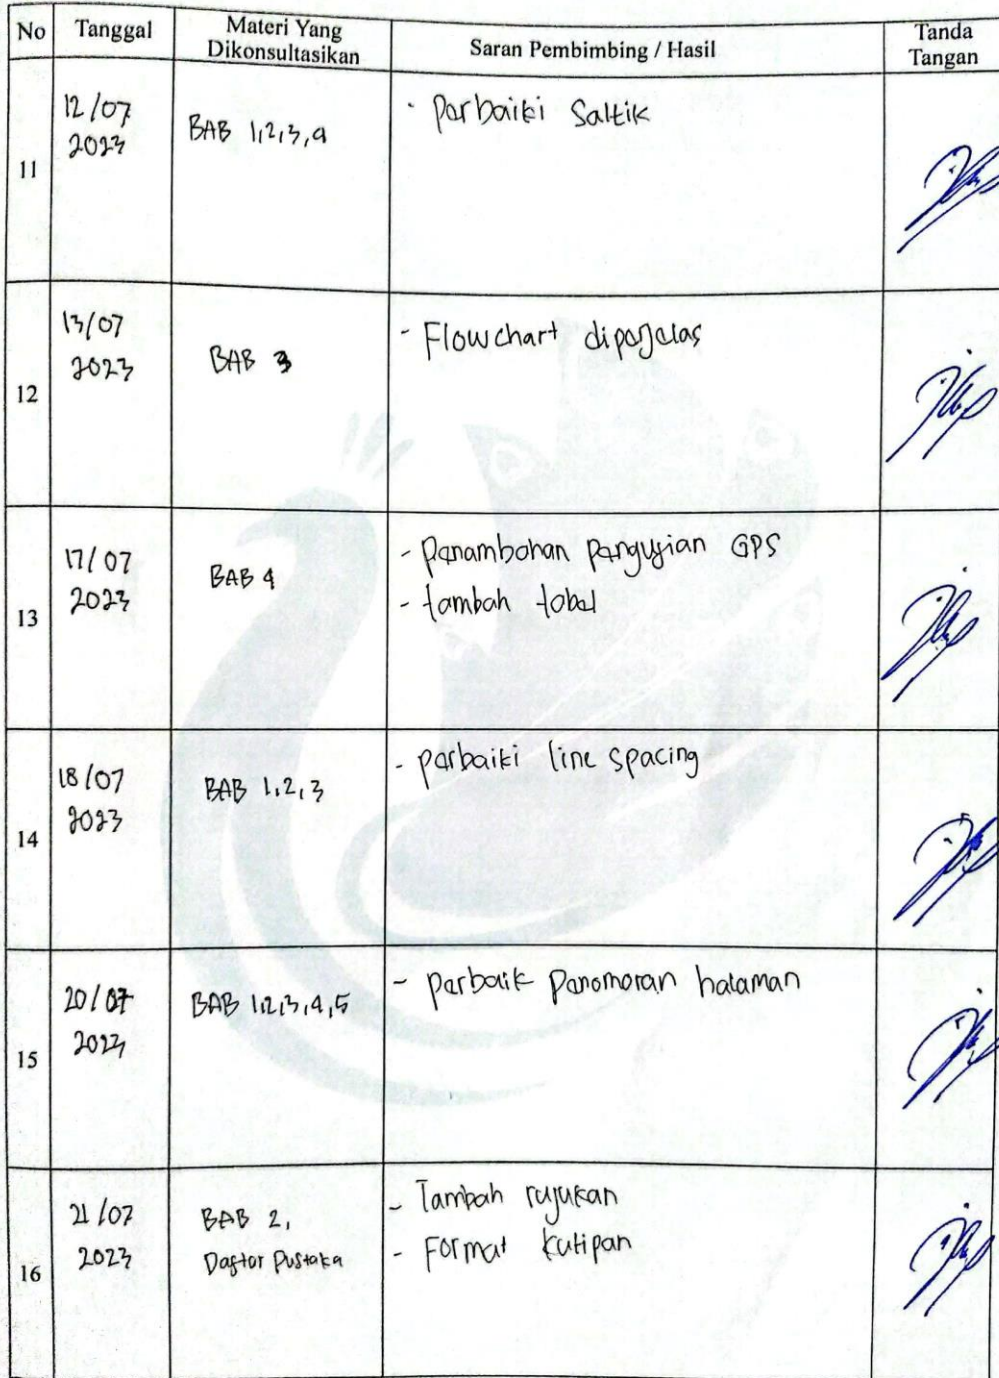 No Tanggal Materi Yang Dikonsultasikan Saran Pembimbing / Hasil Tanda Tangan
11
12/07
2023
BAB 1,2,3,4
- Perbaiki Saltik
12
13/07
2023
BAB 3
- Flowchart diperjelas
13
17/07
2023
BAB 4
- Penambahan pengujian GPS
- tambah tabel
14
18/07
2023
BAB 1,2,3
- perbaiki line spacing
15
20/07
2023
BAB 1,2,3,4,5
- perbaik Penomoran halaman
16
21/07
2023
BAB 2,
Daftar Pustaka
- Tambah rujukan
- Format kutipan